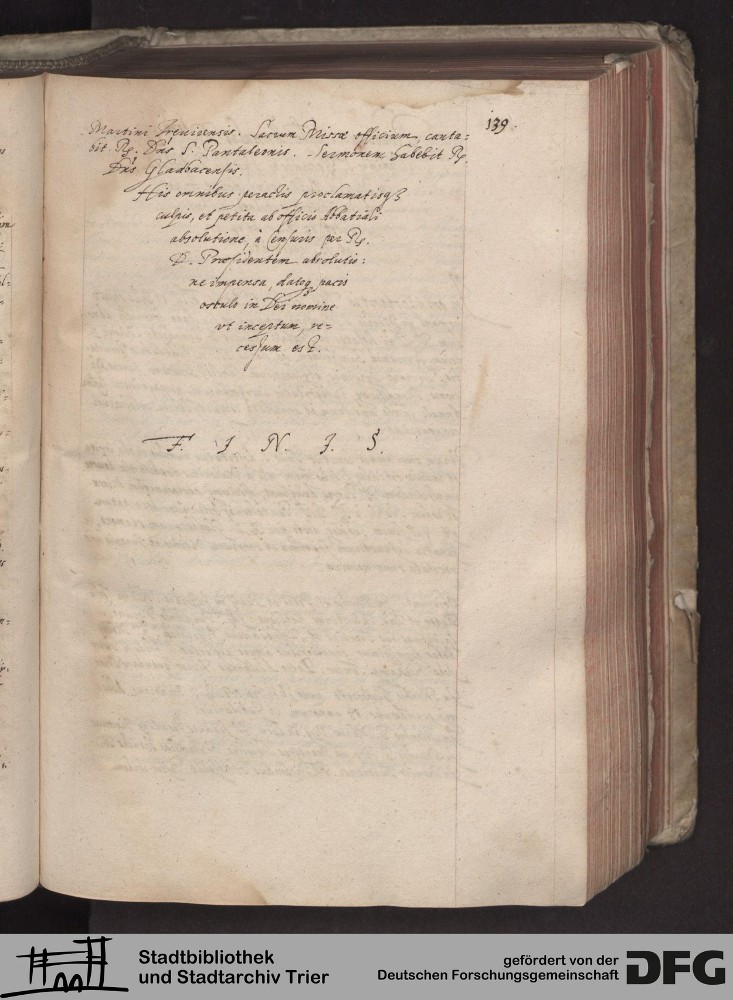 139
Martini Treuirensis. Sacrum Missæ officium canta:
bit R. Dns S. Pantaleonis. Sermonem habebit R.
Dns Gladbacensis.
His omnibus peractis proclamatisqȝ
culpis, et petita ab officio Abbatiali
absolutione, à Censuris per R.
D. Præsidentem absolutio:
ne impensa, datoq pacis
osculo in Dei nomine
vt inceptum, re=
cessum est.
F. I. N. I. S.
Stadtbibliothek
und Stadtarchiv Trier
gefördert von der
Deutschen Forschungsgemeinschaft
DFG